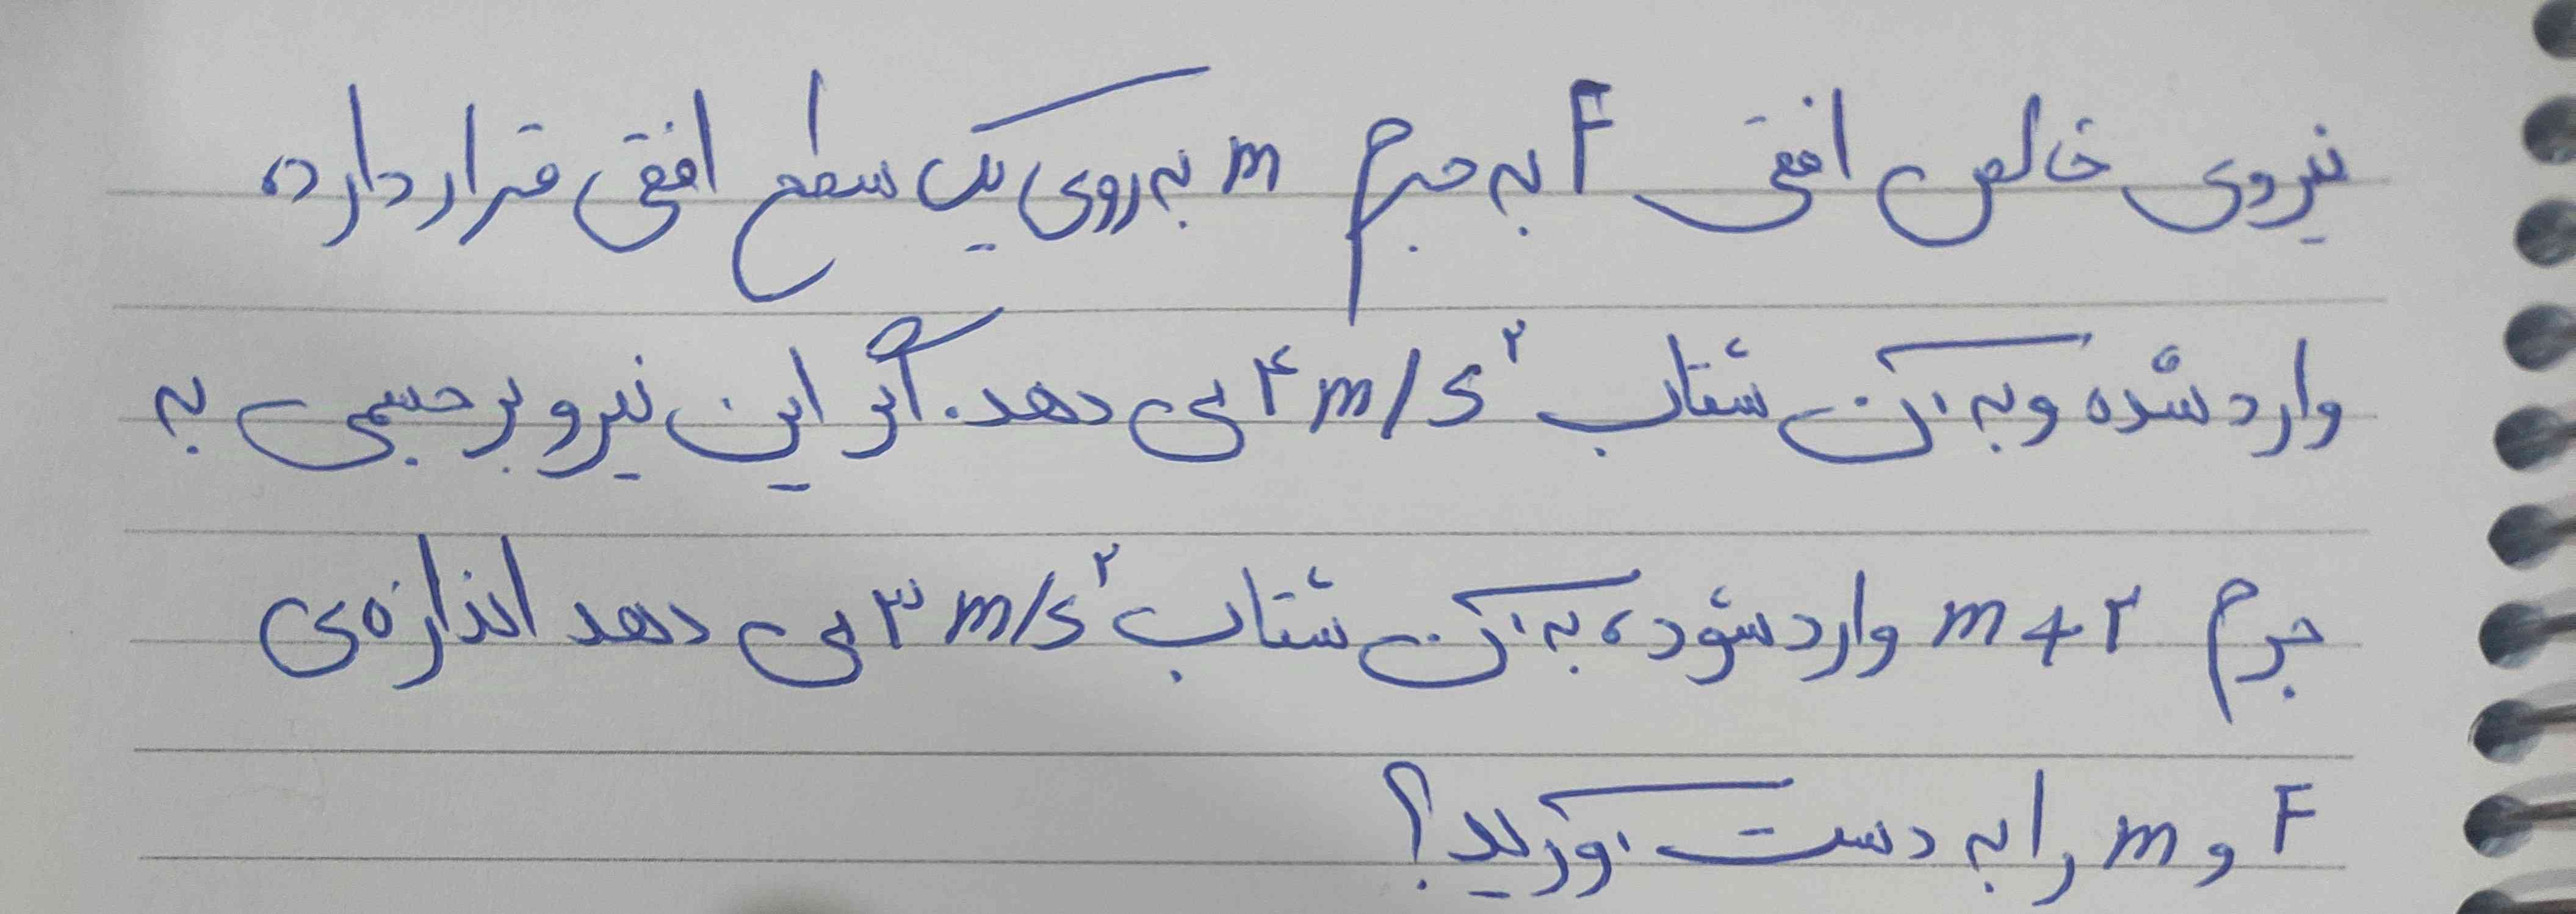 نیروی خالص افقی F به جرم m به روی یک سطح افقی قرار دارد،
وارد شده و به آن شتاب ۴m/s² می دهد. اگر این نیرو بر جسمی به
جرم m+۲ وارد شود، به آن شتاب ۳m/s² می دهد اندازه ی
F و m را به دست آورید؟